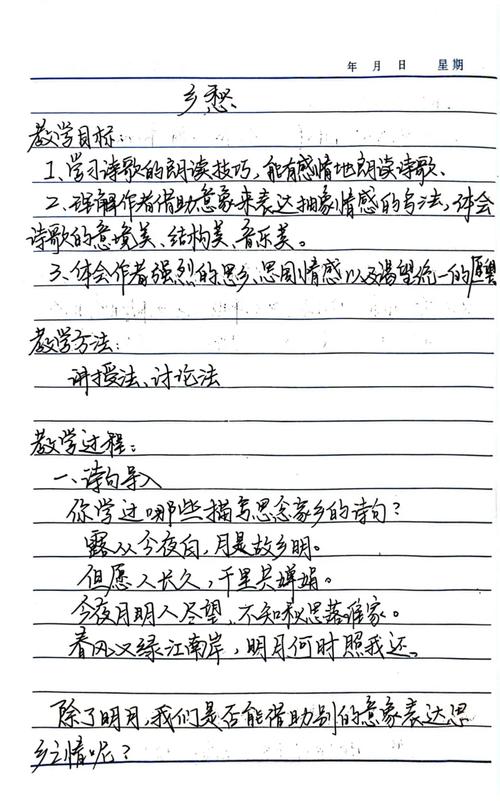 年 月 日 星期
乡愁
教学目标:
1、学习诗歌的朗读技巧,能有感情地朗读诗歌、
2、理解作者借助意象来表达抽象情感的写法,体会
诗歌的意境美、结构美、音乐美。
3、体会作者强烈的思乡、思国情感以及渴望统一的愿望
教学方法:
讲授法、讨论法
教学过程:
一、诗句导入
你学过哪些描写思念家乡的诗句?
露从今夜白,月是故乡明。
但愿人长久,千里共婵娟。
今夜月明人尽望,不知秋思落谁家。
春风又绿江南岸,明月何时照我还。
除了明月,我们是否能借助别的意象表达思
乡之情呢?